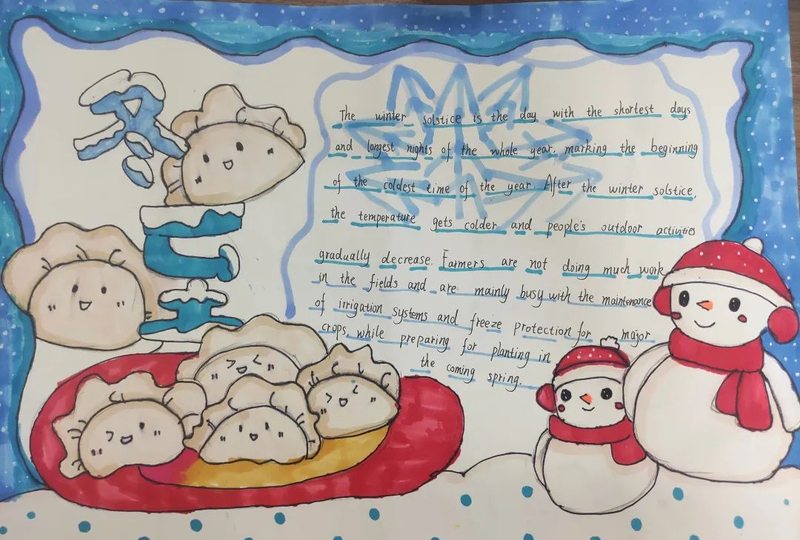 冬至
The winter solstice is the day with the shortest days
and longest nights of the whole year, marking the beginning
of the coldest time of the year. After the winter solstice,
the temperature gets colder and people's outdoor activities
gradually decrease. Farmers are not doing much work
in the fields and are mainly busy with the maintenance
of irrigation systems and freeze protection for major
crops, while preparing for planting in
the coming spring.